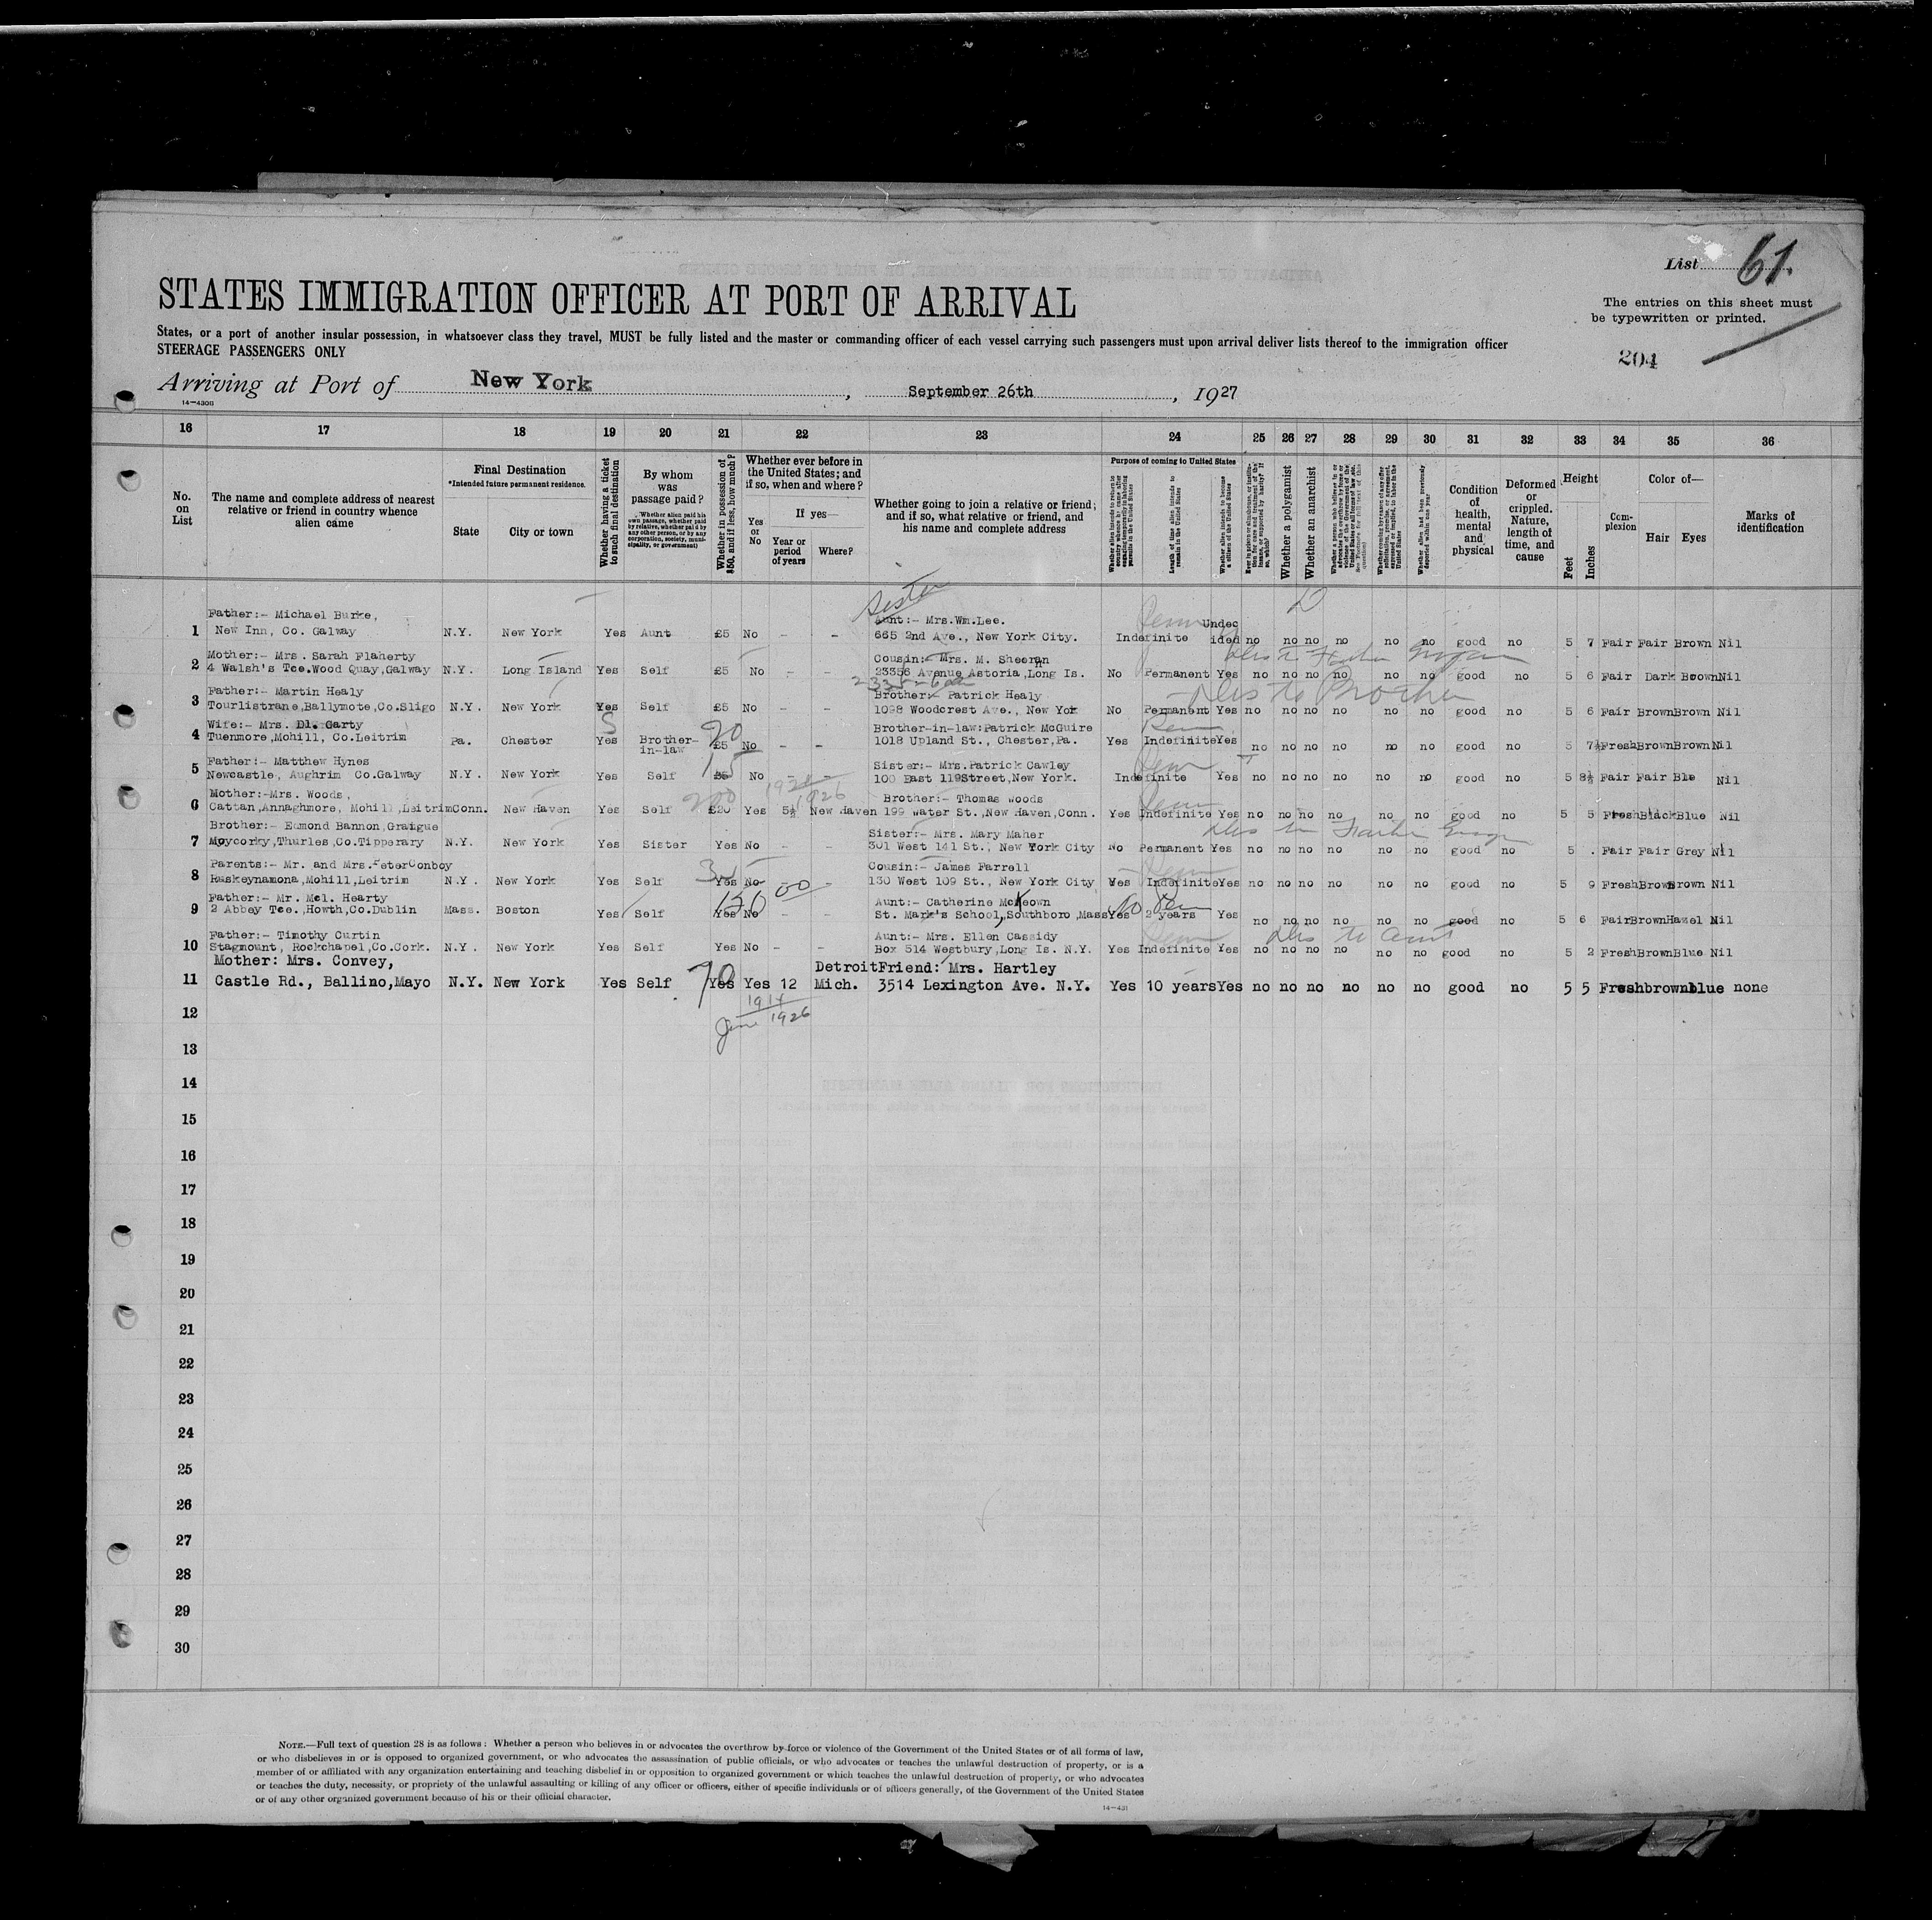 List 61.
STATES IMMIGRATION OFFICER AT PORT OF ARRIVAL
The entries on this sheet must
be typewritten or printed.
States, or a port of another insular possession, in whatsoever class they travel, MUST be fully listed and the master or commanding officer of each vessel carrying such passengers must upon arrival deliver lists thereof to the immigration officer
STEERAGE PASSENGERS ONLY
204
Arriving at Port of New York, September 26th, 1927
14—430B
16 17 18 19 20 21 22 23 24 25 26 27 28 29 30 31 32 33 34 35 36
No. on List
The name and complete address of nearest relative or friend in country whence alien came
Final Destination
*Intended future permanent residence.
State
City or town
Whether having a ticket to such final destination
By whom was passage paid?
(Whether alien paid his own passage, whether paid by relative, whether paid by any other person, or by any corporation, society, municipality, or government)
Whether in possession of $50, and if less, how much?
Whether ever before in the United States; and if so, when and where?
Yes or No
If yes—
Year or period of years
Where?
Whether going to join a relative or friend; and if so, what relative or friend, and his name and complete address
Purpose of coming to United States
Length of time alien intends to remain in the United States
Whether alien intends to become a citizen of the United States
Whether a polygamist
Whether an anarchist
Condition of health, mental and physical
Deformed or crippled. Nature, length of time, and cause
Height
Feet
Inches
Complexion
Color of—
Hair
Eyes
Marks of identification
Sister
Father:- Michael Burke, Aunt:- Mrs.Wm.Lee. Undec
1 New Inn, Co. Galway N.Y. New York Yes Aunt £5 No - - 665 2nd Ave., New York City. Indefinite ided no no no no no no good no 5 7 Fair Fair Brown Nil
Mother:- Mrs. Sarah Flaherty Cousin:- Mrs. M. Sheeran
2 4 Walsh's Tce.Wood Quay,Galway N.Y. Long Island Yes Self £5 No - - 23356 Avenue Astoria,Long Is. No Permanent Yes no no no no no no good no 5 6 Fair Dark Brown Nil
Father:- Martin Healy Brother:- Patrick Healy
3 Tourlistrane,Ballymote,Co.Sligo N.Y. New York Yes Self £5 No - - 1098 Woodcrest Ave., New Yok No Permanent Yes no no no no no no good no 5 6 Fair Brown Brown Nil
Wife:- Mrs. Dl. Garty 20 Brother-in-law:Patrick McGuire
4 Tuenmore,Mohill, Co.Leitrim Pa. Chester Yes Brother-in-law £5 No - - 1018 Upland St., Chester,Pa. Yes Indefinite Yes no no no no no no good no 5 7½ Fresh Brown Brown Nil
Father:- Matthew Hynes 15 Sister:- Mrs.Patrick Cawley
5 Newcastle, Aughrim Co.Galway N.Y. New York Yes Self £5 No - - 100 East 119Street,New York. Indefinite Yes no no no no no no good no 5 8½ Fair Fair Blue Nil
Mother:-Mrs. Woods, 200 1926 Brother:- Thomas Woods
6 Cattan,Annaghmore, Mohill,Leitrim Conn. New Haven Yes Self £20 Yes 5½ New Haven 199 Water St.,New Haven,Conn. Yes Indefinite Yes no no no no no no good no 5 5 Fresh Black Blue Nil
Brother:- Edmond Bannon,Graigue Sister:- Mrs. Mary Maher
7 Moycorky,Thurles,Co.Tipperary N.Y. New York Yes Sister Yes No - - 301 West 141 St., New York City No Permanent Yes no no no no no no good no 5 . Fair Fair Grey Nil
Parents:- Mr. and Mrs.Peter Conboy Cousin:- James Farrell
8 Ruskeynamona,Mohill,Leitrim N.Y. New York Yes Self Yes No - - 130 West 109 St., New York City Yes Indefinite Yes no no no no no no good no 5 9 Fresh Brown Brown Nil
Father:- Mr. Mcl. Hearty 150 00 Aunt:- Catherine McKeown No
9 2 Abbey Tce.,Howth,Co.Dublin Mass. Boston Yes Self Yes No - - St. Mark's School,Southboro,Mass Yes 2 years Yes no no no no no no good no 5 6 Fair Brown Hazel Nil
Father:- Timothy Curtin Aunt:- Mrs. Ellen Cassidy
10 Stagmount, Rockchapel,Co.Cork. N.Y. New York Yes Self Yes No - - Box 514 Westbury,Long Is. N.Y. Yes Indefinite Yes no no no no no no good no 5 2 Fresh Brown Blue Nil
Mother: Mrs. Convey, 70 Detroit Friend: Mrs. Hartley
11 Castle Rd., Ballino,Mayo N.Y. New York Yes Self Yes Yes 12 Mich. 3514 Lexington Ave. N.Y. Yes 10 years Yes no no no no no no good no 5 5 Fresh brown blue none
1914
June 1926
12
13
14
15
16
17
18
19
20
21
22
23
24
25
26
27
28
29
30
NOTE.—Full text of question 28 is as follows: Whether a person who believes in or advocates the overthrow by force or violence of the Government of the United States or of all forms of law,
or who disbelieves in or is opposed to organized government, or who advocates the assassination of public officials, or who advocates or teaches the unlawful destruction of property, or is a
member of or affiliated with any organization entertaining and teaching disbelief in or opposition to organized government or which teaches the unlawful destruction of property, or who advocates
or teaches the duty, necessity, or propriety of the unlawful assaulting or killing of any officer or officers, either of specific individuals or of officers generally, of the Government of the United States
or of any other organized government because of his or their official character.
14—431